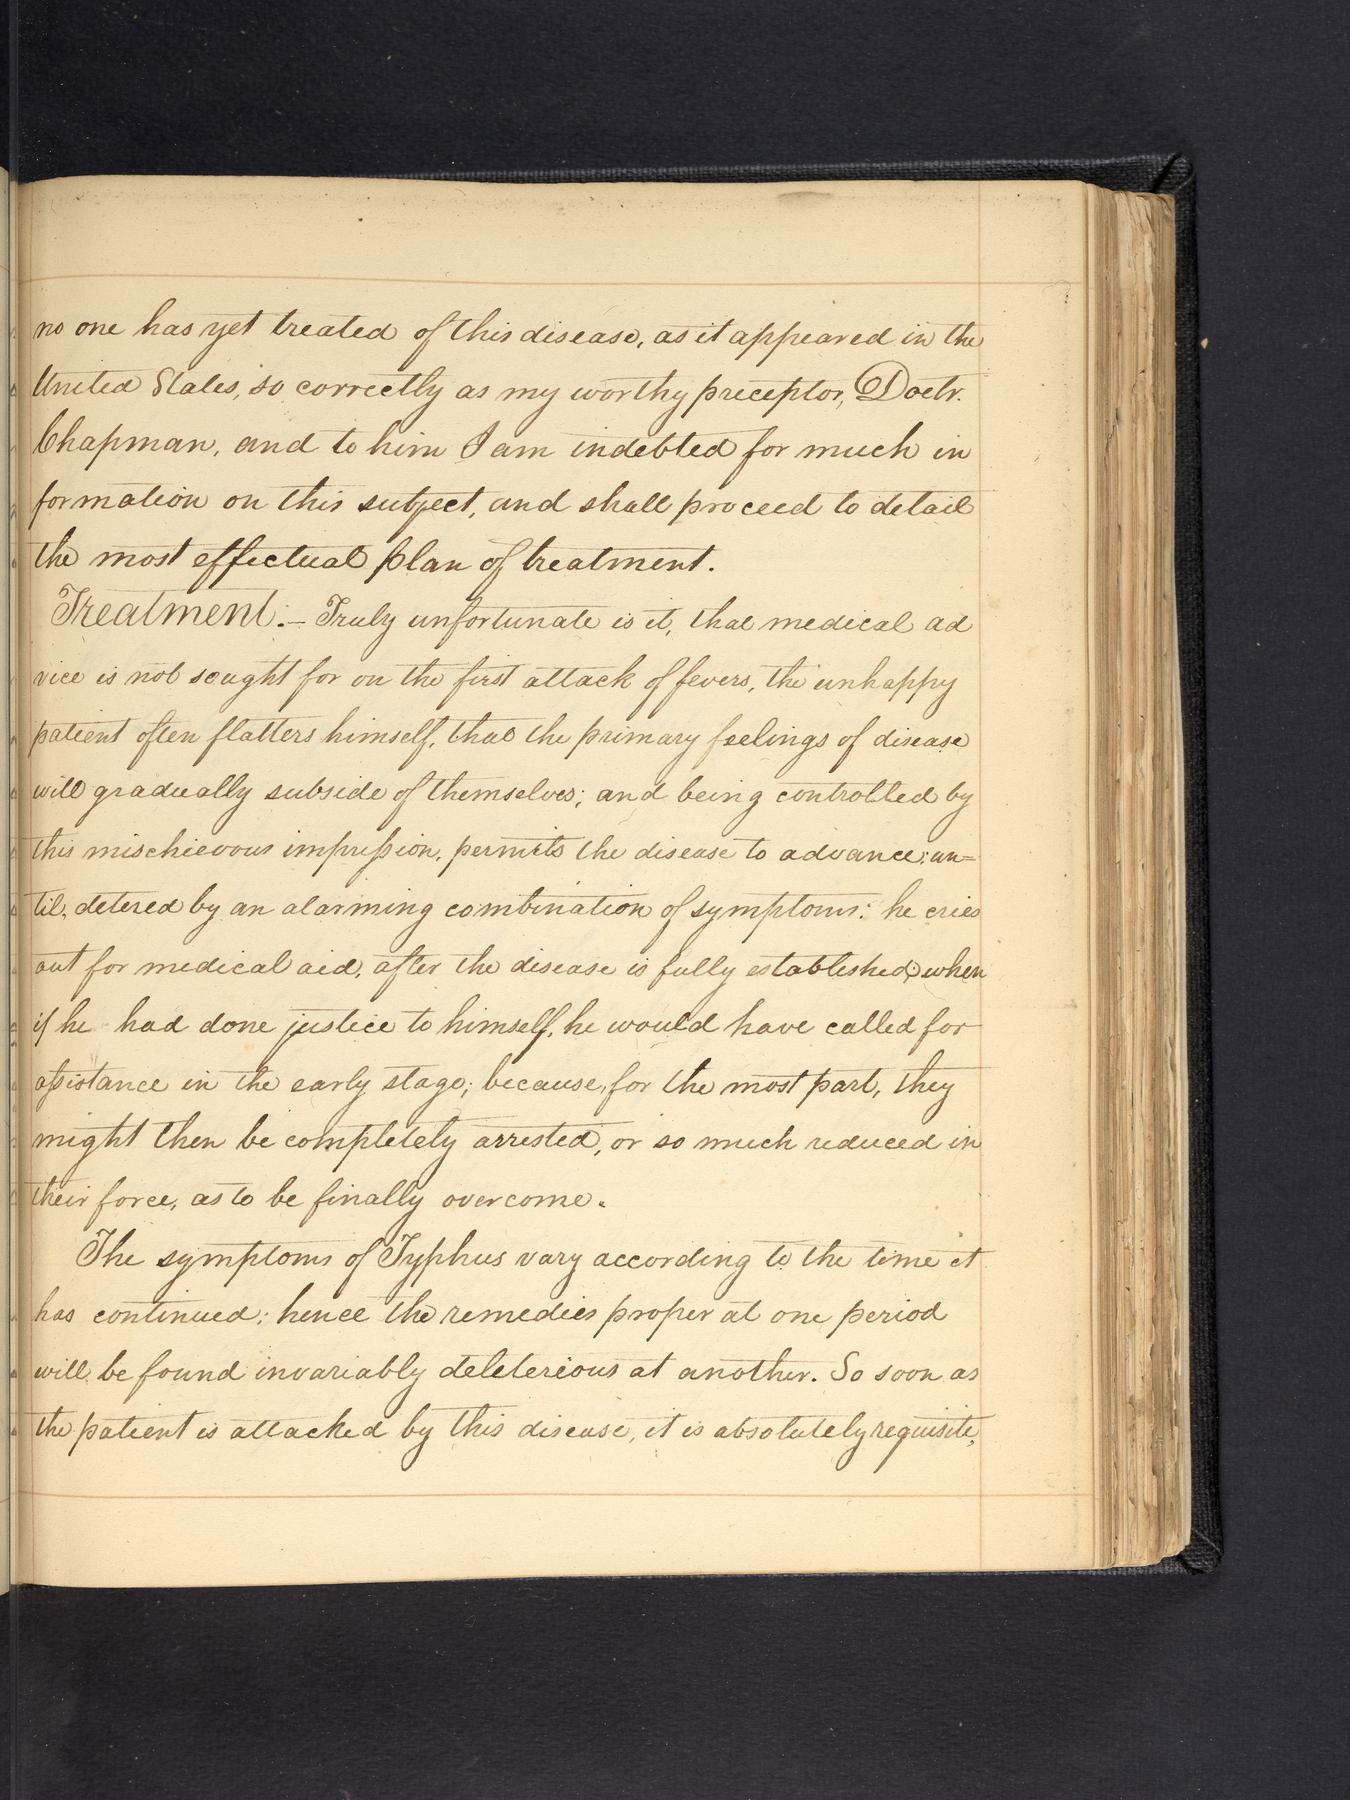 no one has yet treated of this disease, as it appeared in the
United States, so correctly as my worthy preceptor, Doctr.
Chapman, and to him I am indebted for much in
formation on this subject, and shall proceed to detail
the most effectual plan of treatment.
Treatment.— Truly unfortunate is it, that medical ad
vice is not sought for on the first attack of fevers, the unhappy
patient often flatters himself, that the primary feelings of disease
will gradually subside of themselves; and being controlled by
this mischievous impression, permits the disease to advance; un=
til, detered by an alarming combination of symptoms: he cries
out for medical aid, after the disease is fully established; when
if he had done justice to himself, he would have called for
assistance in the early stage; because, for the most part, they
might then be completely arrested, or so much reduced in
their force, as to be finally overcome.
The symptoms of Typhus vary according to the time it
has continued; hence the remedies proper at one period
will be found invariably deleterious at another. So soon as
the patient is attacked by this disease, it is absolutely requisite,